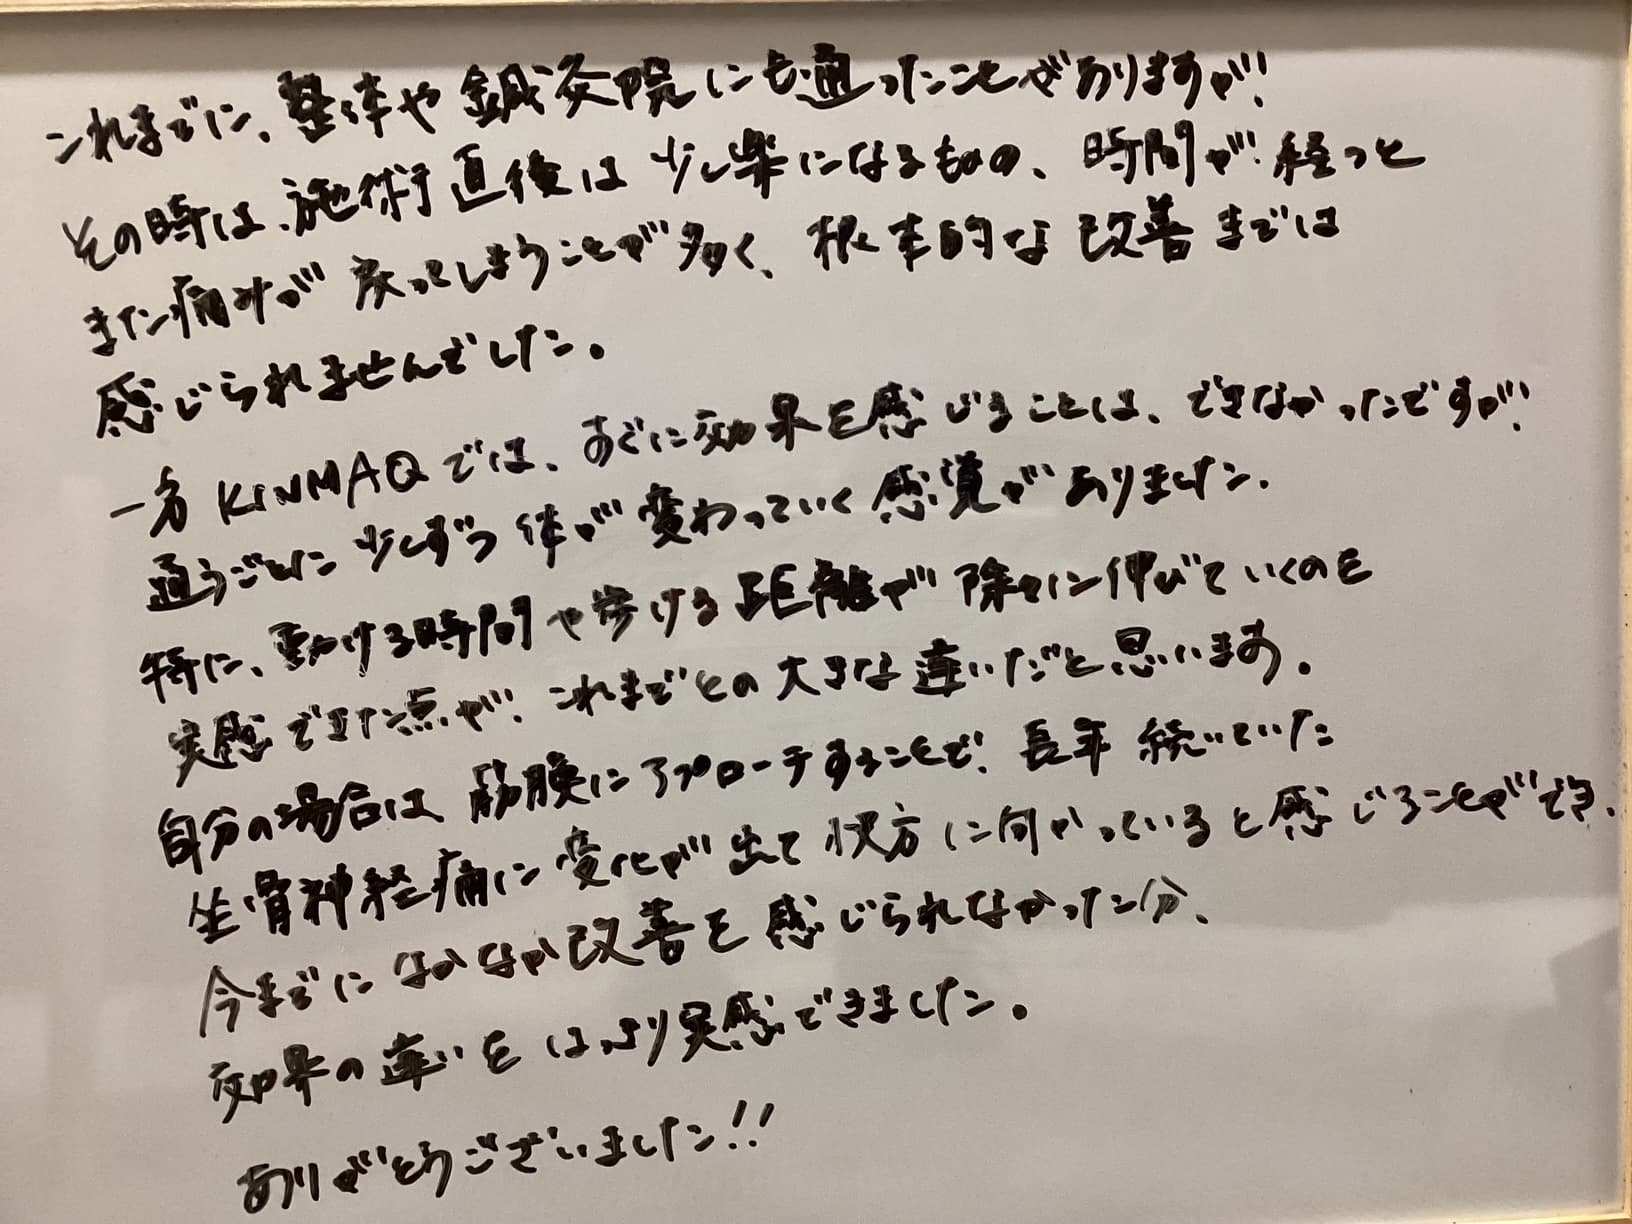 これまでに、整体や鍼灸院にも通ったことがありますが、
その時は、施術直後は少し楽になるもの、時間が経つと
また痛みが戻ってしまうことが多く、根本的な改善までは
感じられませんでした。
一方KINMAQでは、すぐに効果を感じることは、できなかったですが、
通うごとに少しずつ体が変わっていく感覚がありました。
特に、動ける時間や歩ける距離が除々に伸びていくのを
実感できた点が、これまでとの大きな違いだと思います。
自分の場合は筋膜にアプローチすることで、長年続いていた
坐骨神経痛に変化が出て快方に向かっていると感じることができ、
今までになかなか改善を感じられなかった分、
効果の違いをはっきり実感できました。
ありがとうございました!!